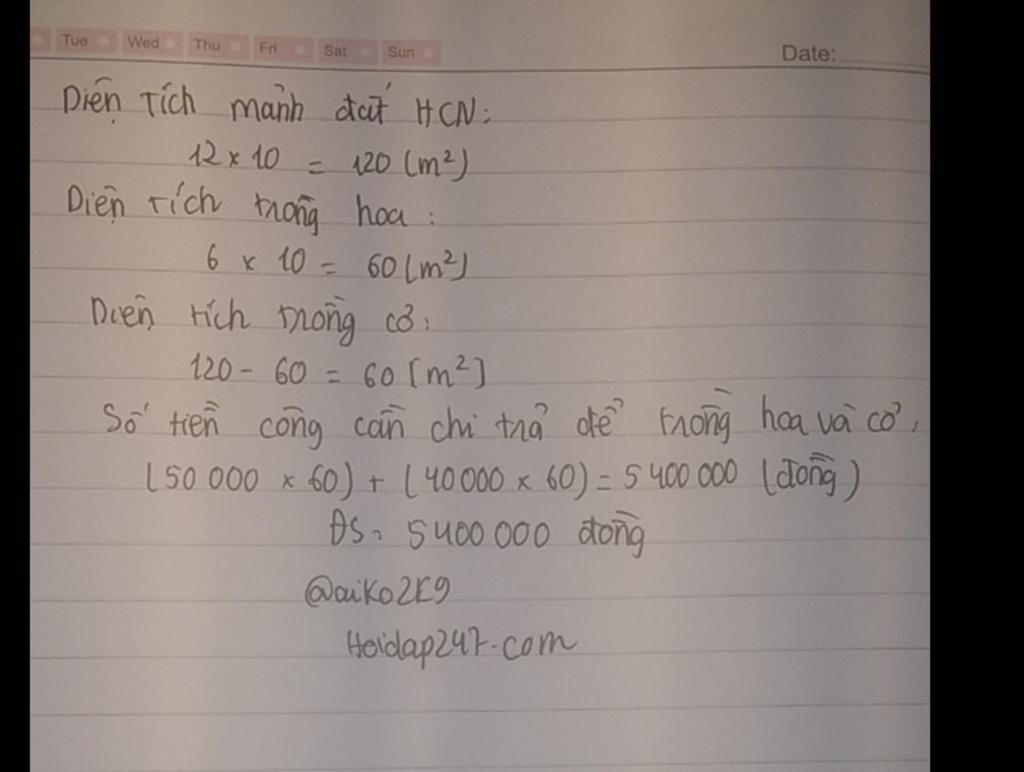 Tue Wed Thu Fri Sat Sun
Date:
Diện tích mảnh đất HCN:
12 x 10 = 120 (m²)
Diện tích trồng hoa:
6 x 10 = 60 (m²)
Diện tích trồng cỏ:
120 - 60 = 60 (m²)
Số tiền công cần chi trả để trồng hoa và cỏ:
(50 000 x 60) + (40 000 x 60) = 5 400 000 (đồng)
ĐS: 5 400 000 đồng
@aiko2K9
Hoidap247.com